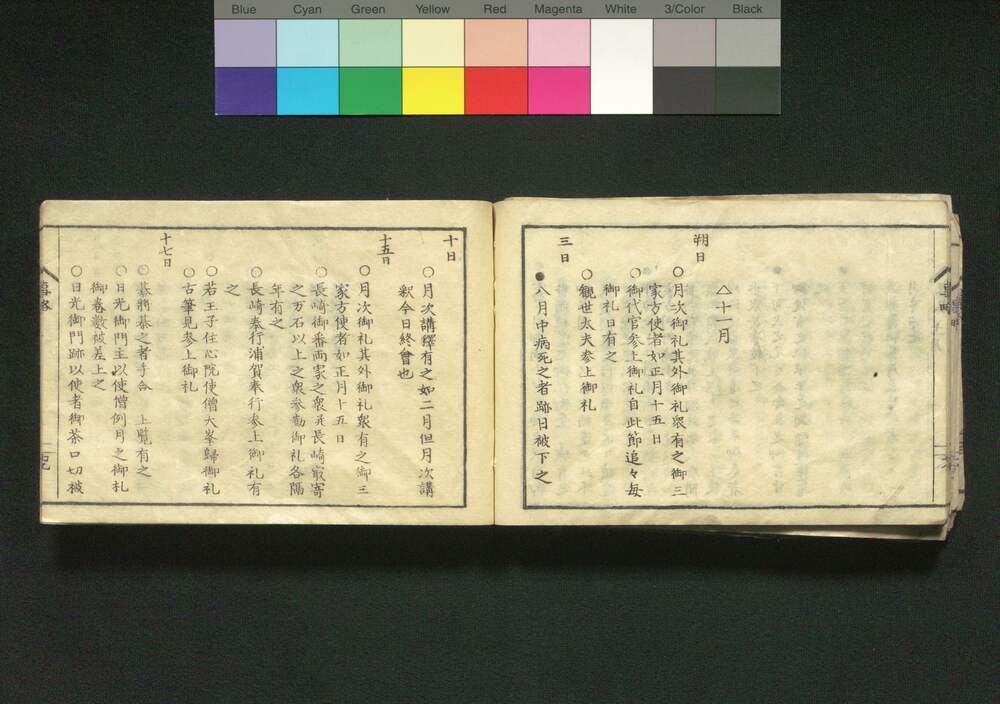 Blue Cyan Green Yellow Red Magenta White 3/Color Black
△十一月
朔日
○月次御礼其外御礼衆有之御三
家方使者如正月十五日
○御代官参上御礼自此節追々毎
御礼日有之
三日
○観世太夫参上御礼
●八月中病死之者跡目被下之
十日
○月次講釋有之如二月但月次講
釈今日終會也
十五日
○月次御礼其外御礼衆有之御三
家方使者如正月十五日
○長崎御番両家之衆并長崎最寄
之万石以上之衆参勤御礼各隔
年有之
○長崎奉行浦賀奉行参上御礼有
之
○若王子住心院使僧大峯歸御礼
○古筆見参上御礼
十七日
○碁将碁之者手合 上覧有之
○日光御門主以使僧例月之御札
御巻數被差上之
○日光御門跡以使者御茶口切被